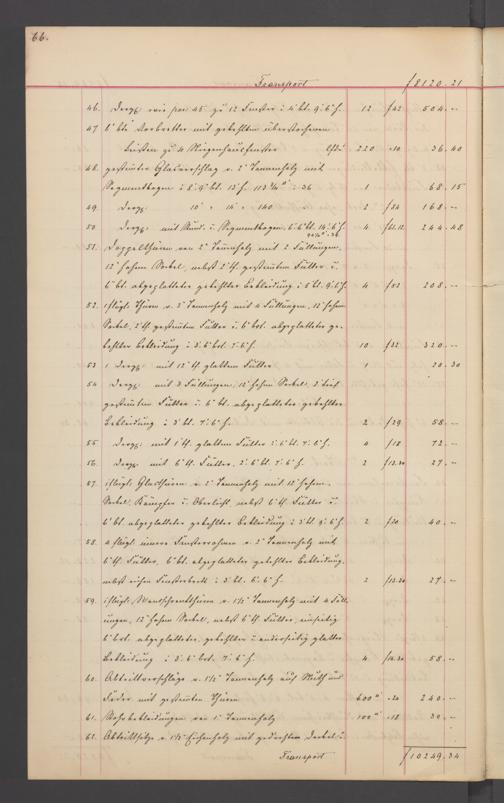 66.
Transport f 8120. 21
46. Dergl. wie pos 45 zu 12 Fenster : 4' bt. 9' 6" h. 12 f 42 504. --
47. bt. Vorbretter mit gekehlten überstochenen
Leisten zu 4 Stiegenhausfenster 220 -10 36. 40
48. gestemter Glasverschlag v. 2" Tannenholz mit
Segmentbogen : 8' 9" bt. 13' h. 113 3/4 □' -36 1 68. 15
49. Dergl. 10' " 14' " 140 2 f 84 168. --
50. Dergl. mit Rund- u. Segmentbogen 6' 6" bt. 14' 6" h. 4 f 61.12 244. 48
51. Doppelthüren von 2" Tannenholz mit 2 Füllungen,
12" hohem Sockel, nebst 2' tf. gestemten Futter u.
6" bt. abgeplatteter gekehlter Bekleidung : 5' bt. 9' 6" h. 4 f 52 208. --
52. 1flügl. Thüren v. 2" Tannenholz mit 4 Füllungen, 12" hohem
Sockel, 2' tf. gestemten Futter u. 6" brt. abgeplatteter ge-
kehlter Bekleidung : 3' 6" brt. 7' 6" h. 10 f 32 320. --
53. 1 Dergl. mit 12" tf. glattem Futter 1 20. 30
54. Dergl. mit 3 Füllungen, 12" hohem Sockel, 2' tief
gestemten Futter u. 6" bt. abgeplatteter gekehlter
Bekleidung : 3' bt. 7' 6" h. 2 f 29 58. --
55. Dergl. mit 1' tf. glattem Futter : 2' 6" bt. 7' 6" h. 4 f 18 72. --
56. Dergl. mit 6" tf. Futter, 2' 6" bt. 7' 6" h. 2 f 13.30 27. --
57. 1flügl. Glasthüren v. 2" Tannenholz mit 12" hohem
Sockel, Kämpfer u. Oberlicht, nebst 6" tf. Futter u.
6" bt. abgeplatteter gekehlter Bekleidung : 3' bt. 9' 6" h. 2 f 20 40. --
58. 4 flügl. innere Fensterrahmen v. 2" Tannenholz mit
6" tf. Futter, 6" bt. abgeplatteter gekehlter Bekleidung,
nebst eichen Fensterbrett : 3' bt. 6' 6" h. 2 f 13.30 27. --
59. 1flügl. Wandschrankthüren v. 1 1/2" Tannenholz mit 4 Füll-
ungen, 12" hohem Sockel, nebst 6" tf. Futter, einseitig
6" brt. abgeplatteter, gekehlter u. anderseitig glatter
Bekleidung : 3' 6" brt. 7' 6" h. 4 f 14.30 58. --
60. Abtrittverschläge v. 1 1/2" Tannenholz auf Nuth und
Feder mit gestemten Thüren 600 □' -24 240. --
61. Rohrbekleidungen von 1" Tannenholz 100 □' -18 30. --
62. Abtrittsitze v. 1 1/2" Eichenholz mit gedrehten Deckel u.
Transport f 10249. 34